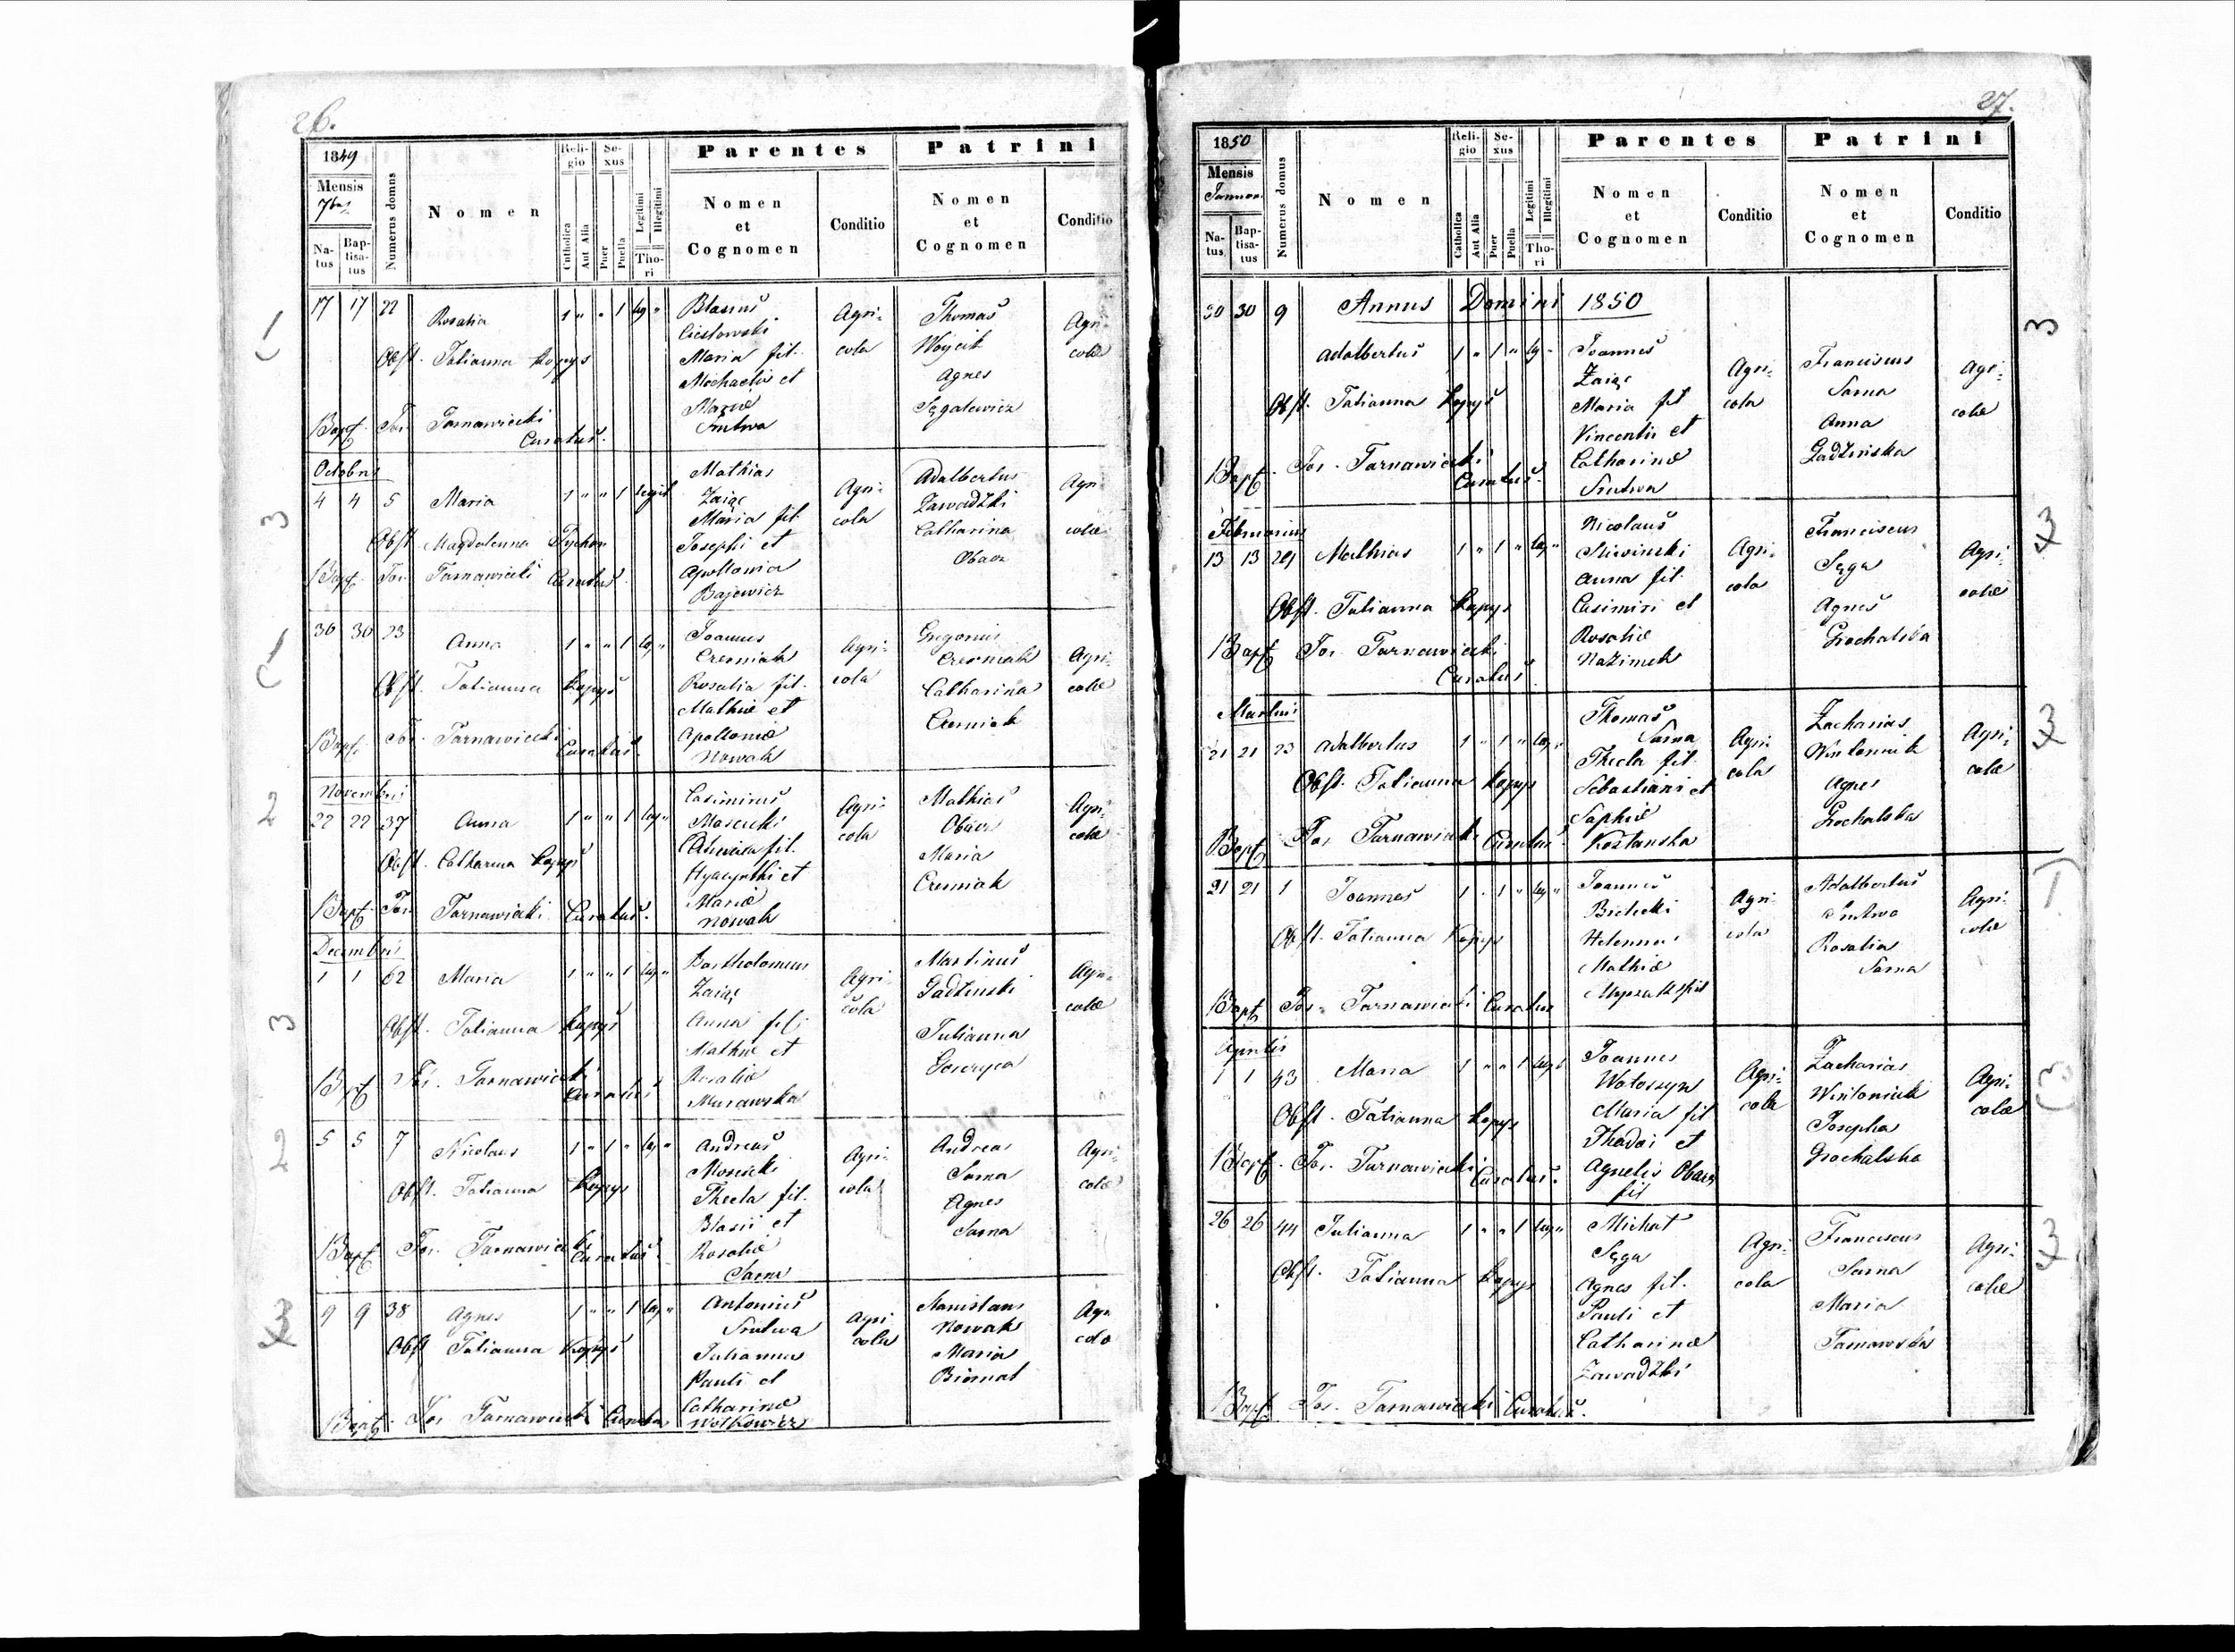 26.
1849
Mensis
7bris
Na-
tus
Bap-
tisa-
tus
Numerus domus
Nomen
Reli-
gio
Catholica
Aut Alia
Se-
xus
Puer
Puella
Legitimi
Illegitimi
Tho-
ri
Parentes
Nomen
et
Cognomen
Conditio
Patrini
Nomen
et
Cognomen
Conditio
17 17 22 Rosalia 1 " " 1 leg "
Obst. Tatianna Kopys
Bapt. Jos. Tarnawiecki
Curatus.
Blasius
Cieslowski
Maria fil.
Michaelis et
Srutwa
Agri-
cola
Thomas
Woycik
Agnes
Sęgalewicz
Agri-
colæ
Octobris
4 4 5 Maria 1 " " 1 legit
Obst. Magdalenna Tychon
Bapt. Jos. Tarnawiecki Curatus
Mathias
Zaiąc
Maria fil.
Josephi et
Apollonia
Bajewicz
Agri-
cola
Adalbertus
Zawadzki
Catharina
Obacz
Agri
colæ
30 30 23 Anna 1 " " 1 leg "
Obst. Tatianna Kopys
Bapt. Jos. Tarnawiecki
Curatus.
Joannes
Czerniak
Rosalia fil.
Mathiæ et
Apolloniæ
Nowak
Agri-
cola
Gregorius
Czerniak
Catharina
Czerniak
Agri-
colæ
Novembris
22 22 37 Anna 1 " " 1 leg "
Obst. Catharina Kopys
Bapt. Jos. Tarnawiecki Curatus.
Casimirus
fil.
Hyacynthi et
Mariæ
Nowak
Agri-
cola
Mathias
Obacz
Maria
Czerniak
Agri-
colæ
Decembris
1 1 62 Maria 1 " " 1 leg "
Obst. Tatianna Kopys
Bapt Jos. Tarnawiecki
Curatus
Bartholomeus
Zaiąc
Anna fil.
Mathiæ et
Rosaliæ
Murawska
Agri-
cola
Martinus
Gadzinski
Julianna
Agri-
colæ
5 5 7 Nicolaus 1 " 1 " leg "
Obst. Tatianna Kopys
Bapt Jos. Tarnawiecki
Curatus
Andreas
Thecla fil.
Blasii et
Rosaliæ
Sarna
Agri-
cola
Andreas
Sarna
Agnes
Sarna
Agri-
colæ
9 9 38 Agnes 1 " " 1 leg "
Obst Tatianna Kopys
Bapt. Jos Tarnawiecki Curatus
Antonius
Srutwa
Julianna
Pauli et
Catharinæ
Wolkowicz
Agri
cola
Stanislaus
Nowak
Maria
Biernat
Agri
colæ
27.
1850
Mensis
Januar
Na-
tus
Bap-
tisa-
tus
Numerus domus
Nomen
Reli-
gio
Catholica
Aut Alia
Se-
xus
Puer
Puella
Legitimi
Illegitimi
Tho-
ri
Parentes
Nomen
et
Cognomen
Conditio
Patrini
Nomen
et
Cognomen
Conditio
Annus Domini 1850
30 30 9
Adalbertus 1 " 1 " leg "
Obst. Tatianna Kopys
Bapt. Jos. Tarnawiecki
Curatus.
Joannes
Zaiąc
Maria fil
Vincentii et
Catharinæ
Srutwa
Agri-
cola
Franciscus
Sarna
Anna
Gadzinska
Agri-
colæ
Februarius
13 13 29 Mathias 1 " 1 " leg "
Obst. Tatianna Kopys
Bapt Jos. Tarnawiecki
Curatus.
Nicolaus
Sliwinski
Anna fil.
Casimiri et
Rosaliæ
Nazimek
Agri-
cola
Franciscus
Sęga
Agnes
Grochalska
Agri-
colæ
Martius
21 21 23 Adalbertus 1 " 1 " leg "
Obst. Tatianna Kopys
Bapt Jos Tarnawiecki Curatus
Thomas
Sarna
Thecla fil.
Sebastiani et
Sophiæ
Kozlanska
Agri
cola
Zacharias
Wintoniuk
Agnes
Grochalska
Agri-
colæ
21 21 1 Joannes 1 " 1 " leg "
Obst. Tatianna Kopys
Bapt Jos. Tarnawiecki Curatus
Joannes
Bielecki
Helenna
Mathiæ
Agri-
cola
Adalbertus
Srutwa
Rosalia
Sarna
Agri-
colæ
Aprilis
1 1 43 Maria 1 " " 1 leg "
Obst. Tatianna Kopys
Bapt. Jos. Tarnawiecki
Curatus.
Joannes
Woloszyn
Maria fil
Thadei et
Agnetis Obacz
fil
Agri-
cola
Zacharias
Wintoniuk
Josepha
Grochalska
Agri-
colæ
26 26 44 Julianna 1 " " 1 leg "
Obst. Tatianna Kopys
Bapt Jos. Tarnawiecki Curatus.
Michał
Sęga
Agnes fil.
Pauli et
Catharinæ
Zawadzki
Agri-
cola
Franciscus
Sarna
Maria
Tarnawska
Agri-
colæ